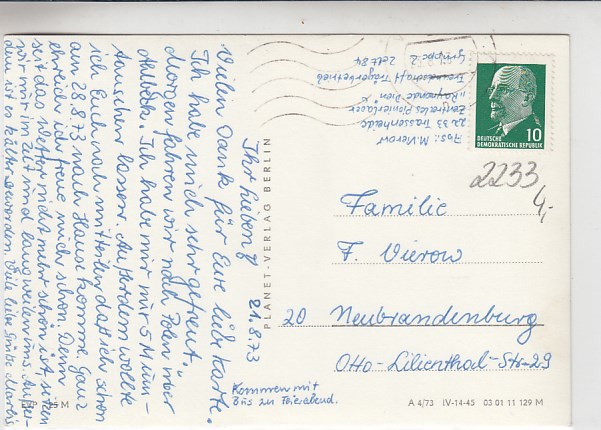 Ihr Lieben! 21.8.73
Vielen Dank für Eure liebe Karte.
Ich habe mich sehr gefreut.
Morgen fahren wir nach Polen über
Ich habe mir nur 5 M um-
tauschen lassen. Außerdem wollte
ich Euch noch mitteilen, daß ich schon
am 28.8.73 nach Hause komme. Ganz
ehrlich ich freue mich schon. Denn
seit das Wetter nicht mehr schön ist, sitzen
wir nur im Zelt und langweilen uns. Außer-
dem ist es kälter geworden. Viele liebe Grüße
Kommen mit
Bus zu Feierabend.
PLANET-VERLAG BERLIN
Abs.: M. Vierow
2233 Trassenheide
Zentrales Pionierlager
"Raymonde Dien"
Freundschaft Trägerbetrieb
Gruppe 2 Zelt 84
DEUTSCHE
DEMOKRATISCHE REPUBLIK
10
2233
4,-
Familie
F. Vierow
20 Neubrandenburg
Otto-Lilienthal-Str. 29
A 4/73 IV-14-45 03 01 11 129 M